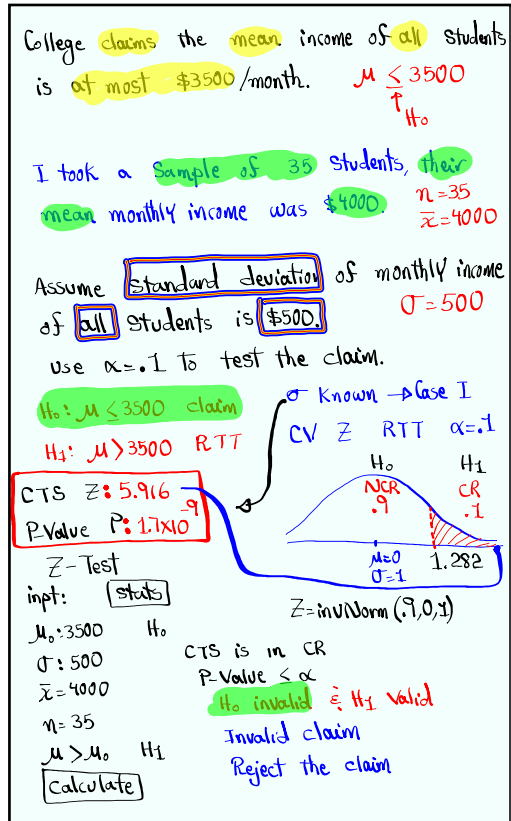 College claims the mean income of all students
is at most $3500/month.
μ ≤ 3500
H₀
I took a Sample of 35 Students, their
mean monthly income was $4000.
n=35
x̄=4000
Assume Standard deviation of monthly income
of all Students is $500.
σ=500
use α=.1 To test the claim.
H₀: μ ≤ 3500 claim
H₁: μ > 3500 RTT
CTS Z: 5.916
P-Value P: 1.7x10⁻⁹
σ Known → Case I
CV Z RTT α=.1
H₀ H₁
NCR CR
.9 .1
μ=0
σ=1
1.282
Z=invNorm(.9,0,1)
Z-Test
inpt: Stats
μ₀: 3500 H₀
σ: 500
x̄=4000
n=35
μ>μ₀ H₁
Calculate
CTS is in CR
P-Value ≤ α
H₀ invalid & H₁ Valid
Invalid claim
Reject the claim